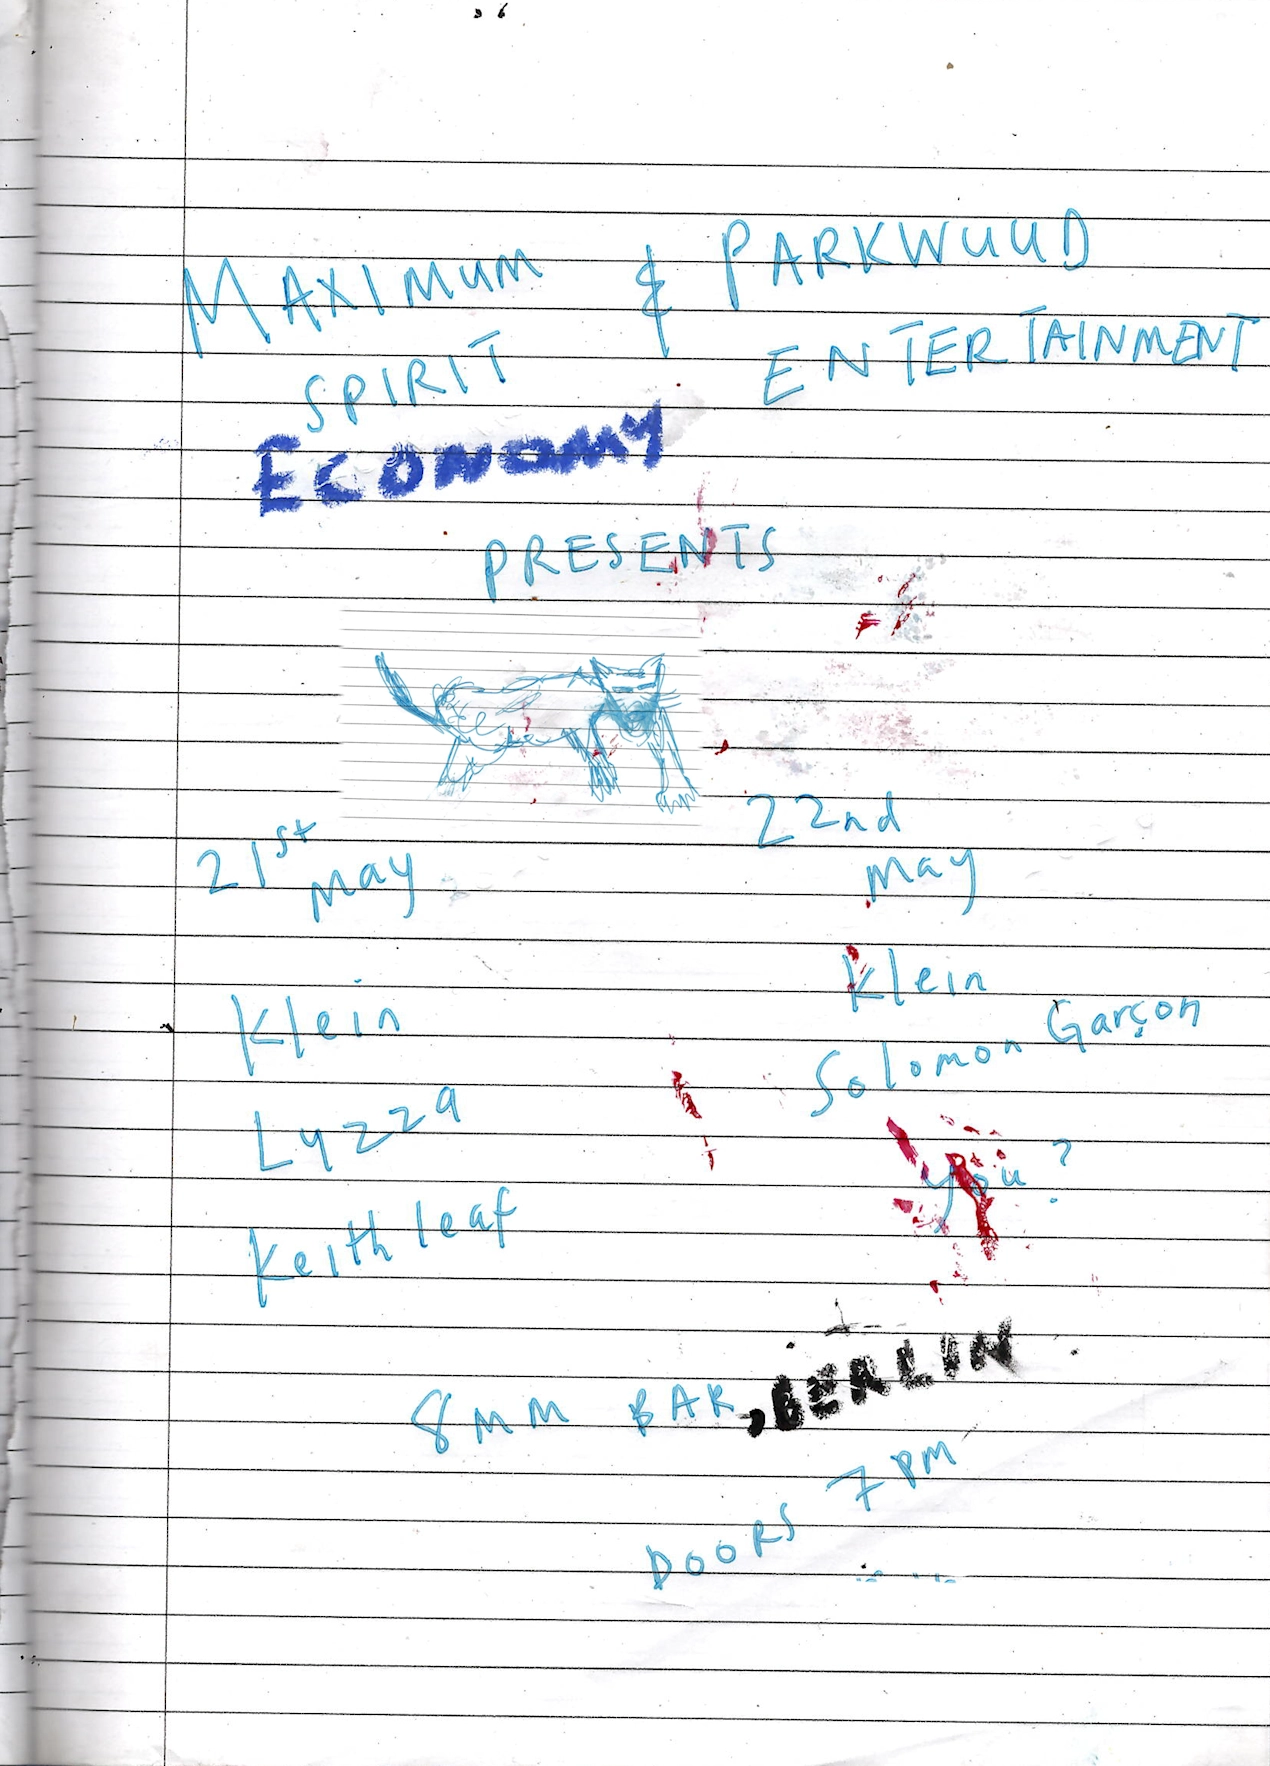 MAXIMUM & PARKWUUD
SPIRIT ENTERTAINMENT
ECONOMY
PRESENTS
21st May
22nd May
Klein
Lyzza
Keith leaf
Klein
Solomon Garçon
You?
8MM BAR, BERLIN
DOORS 7PM